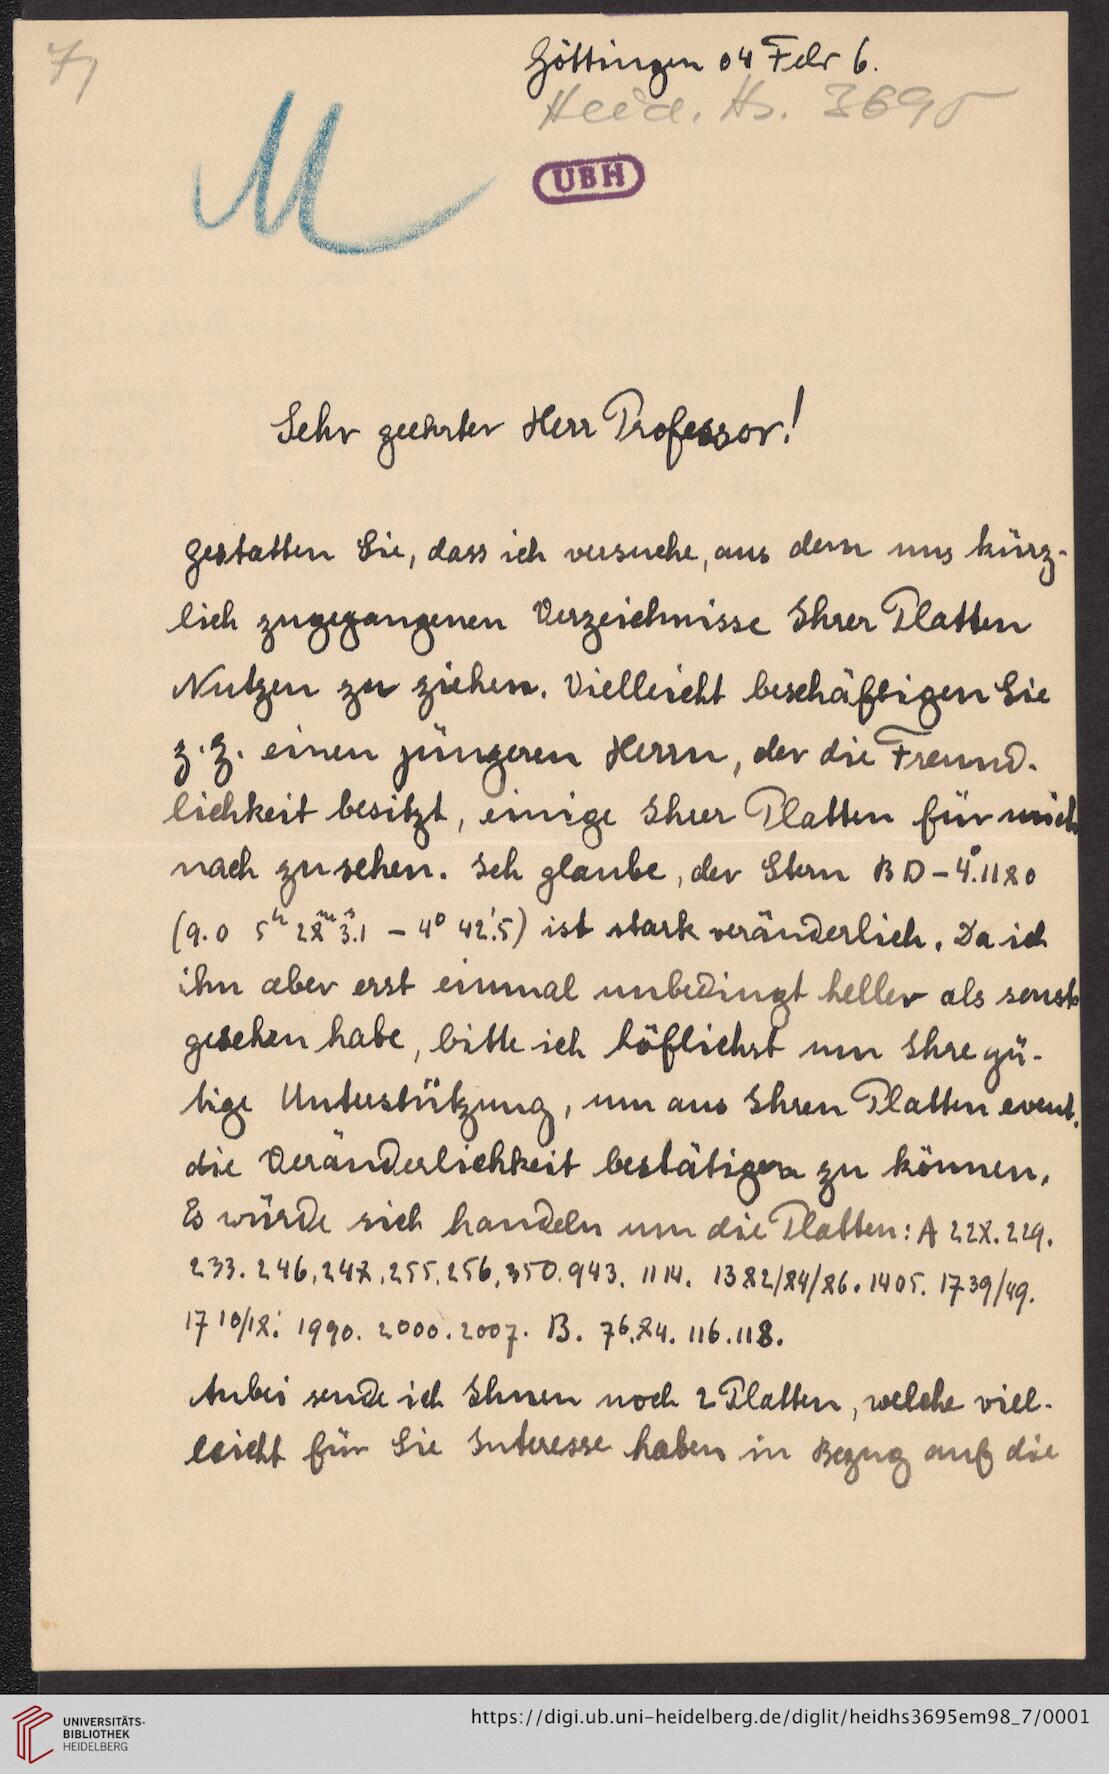 7)
Göttingen 04 Febr 6.
Heid. Hs. 3695
M
UBH
Sehr geehrter Herr Professor!
gestatten Sie, dass ich versuche, aus dem uns kürz-
lich zugegangenen Verzeichnisse Ihrer Platten
Nutzen zu ziehen. Vielleicht beschäftigen Sie
z. Z. einen jüngeren Herrn, der die Freund-
lichkeit besitzt, einige Ihrer Platten für mich
nach zu sehen. Ich glaube, der Stern BD -4°.1180
(9.0 5h 28m 3s.1 - 4° 42'.5) ist stark veränderlich. Da ich
ihn aber erst einmal unbedingt heller als sonst
gesehen habe, bitte ich höflichst um Ihre gü-
tige Unterstützung, um aus Ihren Platten event.
die Veränderlichkeit bestätigen zu können.
Es würde sich handeln um die Platten: A 228. 229.
233. 246. 248. 255. 256. 350. 943. 1114. 1382/84/86. 1405. 1739/49.
1710/18. 1990. 2000. 2007. B. 76. 84. 116. 118.
Anbei sende ich Ihnen noch 2 Platten, welche viel-
leicht für Sie Interesse haben in Bezug auf die
UNIVERSITÄTS-
BIBLIOTHEK
HEIDELBERG
https://digi.ub.uni-heidelberg.de/diglit/heidhs3695em98_7/0001